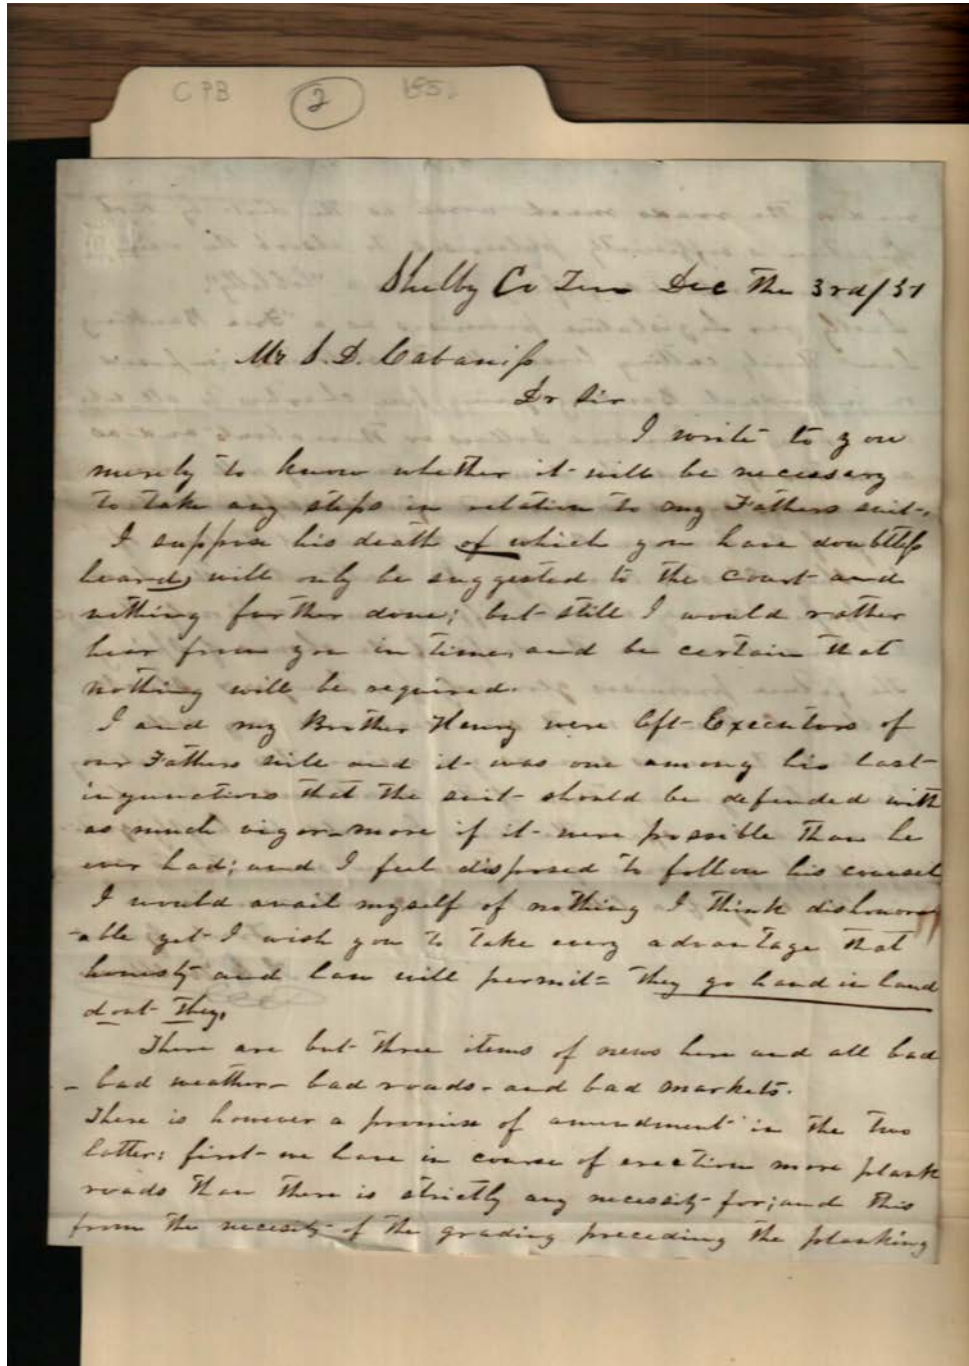 CPB 2 185
Shelby Co Ten Dec the 3rd/51
Mr S. D. Cabaniss
Dr Sir
I write to you
merely to know whether it will be necessary
to take any steps in relation to my Fathers suit.
I suppose his death of which you have doubtless
heard, will only be suggested to the court and
nothing further done; but still I would rather
hear from you in time, and be certain that
nothing will be required.
I and my Brother Henry were left Executors of
our Fathers will and it was one among his last
injunctions that the suit should be defended with
as much vigor – more if it were possible than he
ever had; and I feel disposed to follow his counsel
I would avail myself of nothing I think dishonor
-able yet I wish you to take every advantage that
honesty and law will permit – they go hand in hand
dont they.
There are but three items of news here and all bad
– bad weather – bad roads – and bad markets.
There is however a promise of amendment in the two
latter: first – we have in course of erection more plank
roads than there is strictly any necessity for; and this
from the necesity of the grading preceding the planking